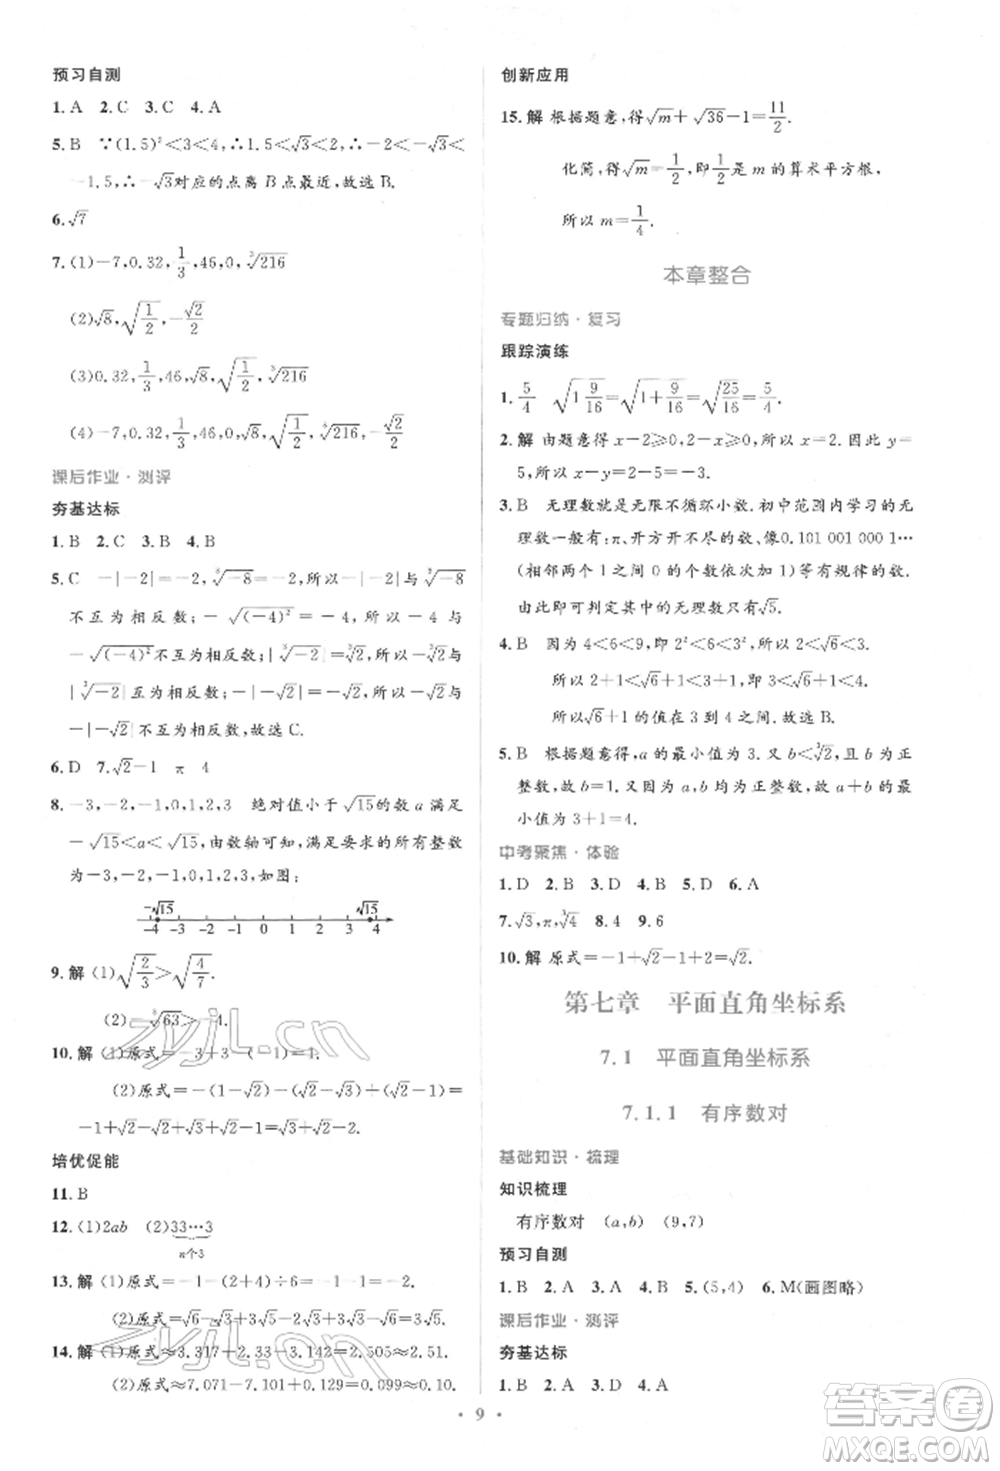 预习自测
1. A  2. C  3. C  4. A
5. B  ∵(1.5)²<3<4,∴1.5<√3<2,∴-2<-√3<
-1.5,∴-√3对应的点离 B 点最近,故选 B.
6. √7
7. (1)-7,0.32,1/3,46,0,∛216
(2)√8,√(1/2),-√2/2
(3)0.32,1/3,46,√8,√(1/2),∛216
(4)-7,0.32,1/3,46,0,√8,√(1/2),∛216,-√2/2
课后作业·测评
夯基达标
1. B  2. C  3. B  4. B
5. C  -|-2|=-2,∛-8=-2,所以-|-2|与∛-8
不互为相反数;-√(-4)²=-4,所以-4与
-√(-4)²不互为相反数;|∛-2|=∛2,所以-∛2与
|∛-2|互为相反数;-|-√2|=-√2,所以-√2与
-|-√2|不互为相反数,故选 C.
6. D  7. √2-1  π  4
8. -3,-2,-1,0,1,2,3  绝对值小于√15的数 a 满足
-√15<a<√15,由数轴可知,满足要求的所有整数
为-3,-2,-1,0,1,2,3.如图:
-√15 √15
-4 -3 -2 -1 0 1 2 3 4
9. 解 (1)√(2/3)>√(4/7).
(2)-∛63>-4.
10. 解 (1)原式=-3+3-(-1)=1.
-1+√2-√2+√3-√3+2=1.
培优促能
11. B
12. (1)2ab  (2)33…3
n个3
13. 解 (1)原式=-1-(2+4)÷6=-1-1=-2.
14. 解 (1)原式≈3.317+2.33-3.142=2.505≈2.51.
(2)原式≈7.071-7.101+0.130=0.10.
创新应用
15. 解 根据题意,得√m+√36-1=11/2.
化简,得√m=1/2,即1/2是 m 的算术平方根,
所以 m=1/4.
本章整合
专题归纳·复习
跟踪演练
1. 5/4  √(1 9/16)=√(1+9/16)=√(25/16)=5/4.
2. 解 由题意得 x-2≥0,2-x≥0,所以 x=2.因此 y=
5,所以 x-y=2-5=-3.
3. B  无理数就是无限不循环小数,初中范围内学习的无
理数一般有:π、开方开不尽的数、像0.101 001 000 1…
(相邻两个1之间0的个数依次加1)等有规律的数.
由此即可判定其中的无理数只有√5.
4. B  因为4<6<9,即2²<6<3²,所以2<√6<3.
所以2+1<√6+1<3+1,即3<√6+1<4.
所以√6+1的值在3到4之间.故选 B.
5. B  根据题意得,a 的最小值为3.又 b<∛2,且 b 为正
整数,所以 b=1.所以当 a,b 均为正整数时,a+b 的最
小值为3+1=4.
中考聚焦·体验
1. D  2. B  3. D  4. B  5. D  6. A
7. √3,π,∛4  8. 4  9. 6
10. 解 原式=-1+√2-1+2=√2.
第七章 平面直角坐标系
7.1 平面直角坐标系
7.1.1 有序数对
基础知识·梳理
知识梳理
有序数对 (a,b) (9,7)
预习自测
1. B  2. A  3. A  4. B  5. (5,4)  6. M(画图略)
课后作业·测评
夯基达标
1. B  2. D  3. A  4. A
· 9 ·
zyjl.cn
zyjl.cn
答案圈
MXQE.COM